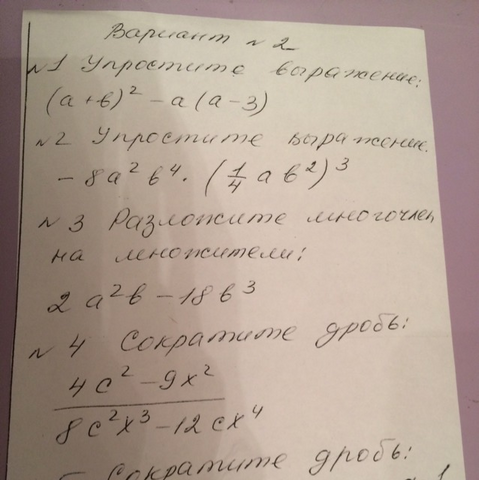 Вариант № 2
№1 Упростите выражение:
(a+в)² - a(a-3)
№2 Упростите выражение.
- 8a²в⁴ · (1/4 aв²)³
№3 Разложите многочлен
на множители:
2a²в - 18в³
№4 Сократите дробь:
4c² - 9x²
8c²x³ - 12cx⁴
Сократите дробь: